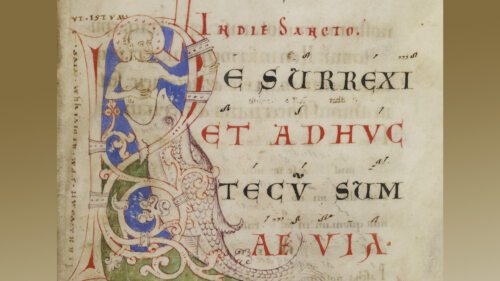 VT·ISTVM·
IN DIE SANCTO.
RESURREXI
ET ADHVC
TECV̄ SUM
AEVIA·